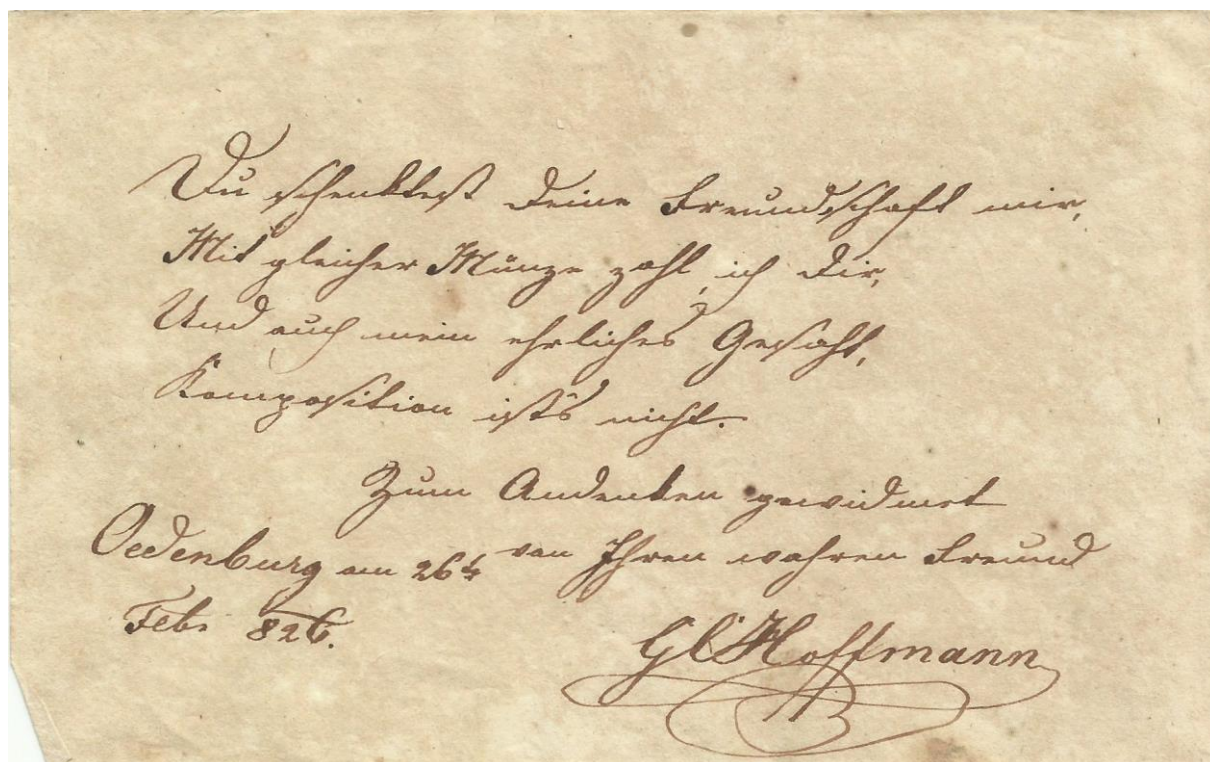 Du schenktest Deine Freundschaft mir,
Mit gleicher Münze zahl, ich Dir,
Und auch mein ehrliches Gesicht,
Komposition ist's nicht.
Zum Andenken gewidmet
von Ihren wahren Freund
Oedenburg am 26t
Febr 826.
Hoffmann